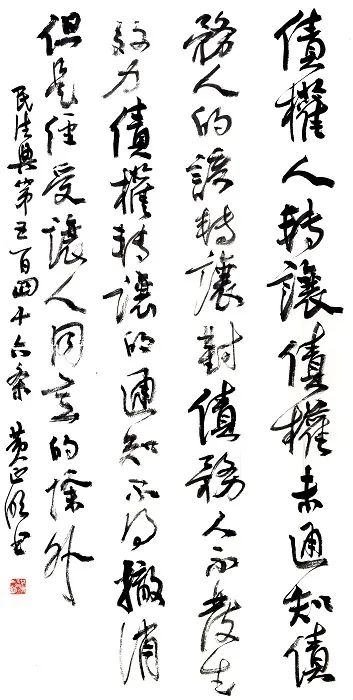 債權人轉讓債權未通知債
務人的該轉讓對債務人不發生
效力債權轉讓的通知不得撤消
但是經受讓人同意的除外
民法典第五百四十六条 黄正书